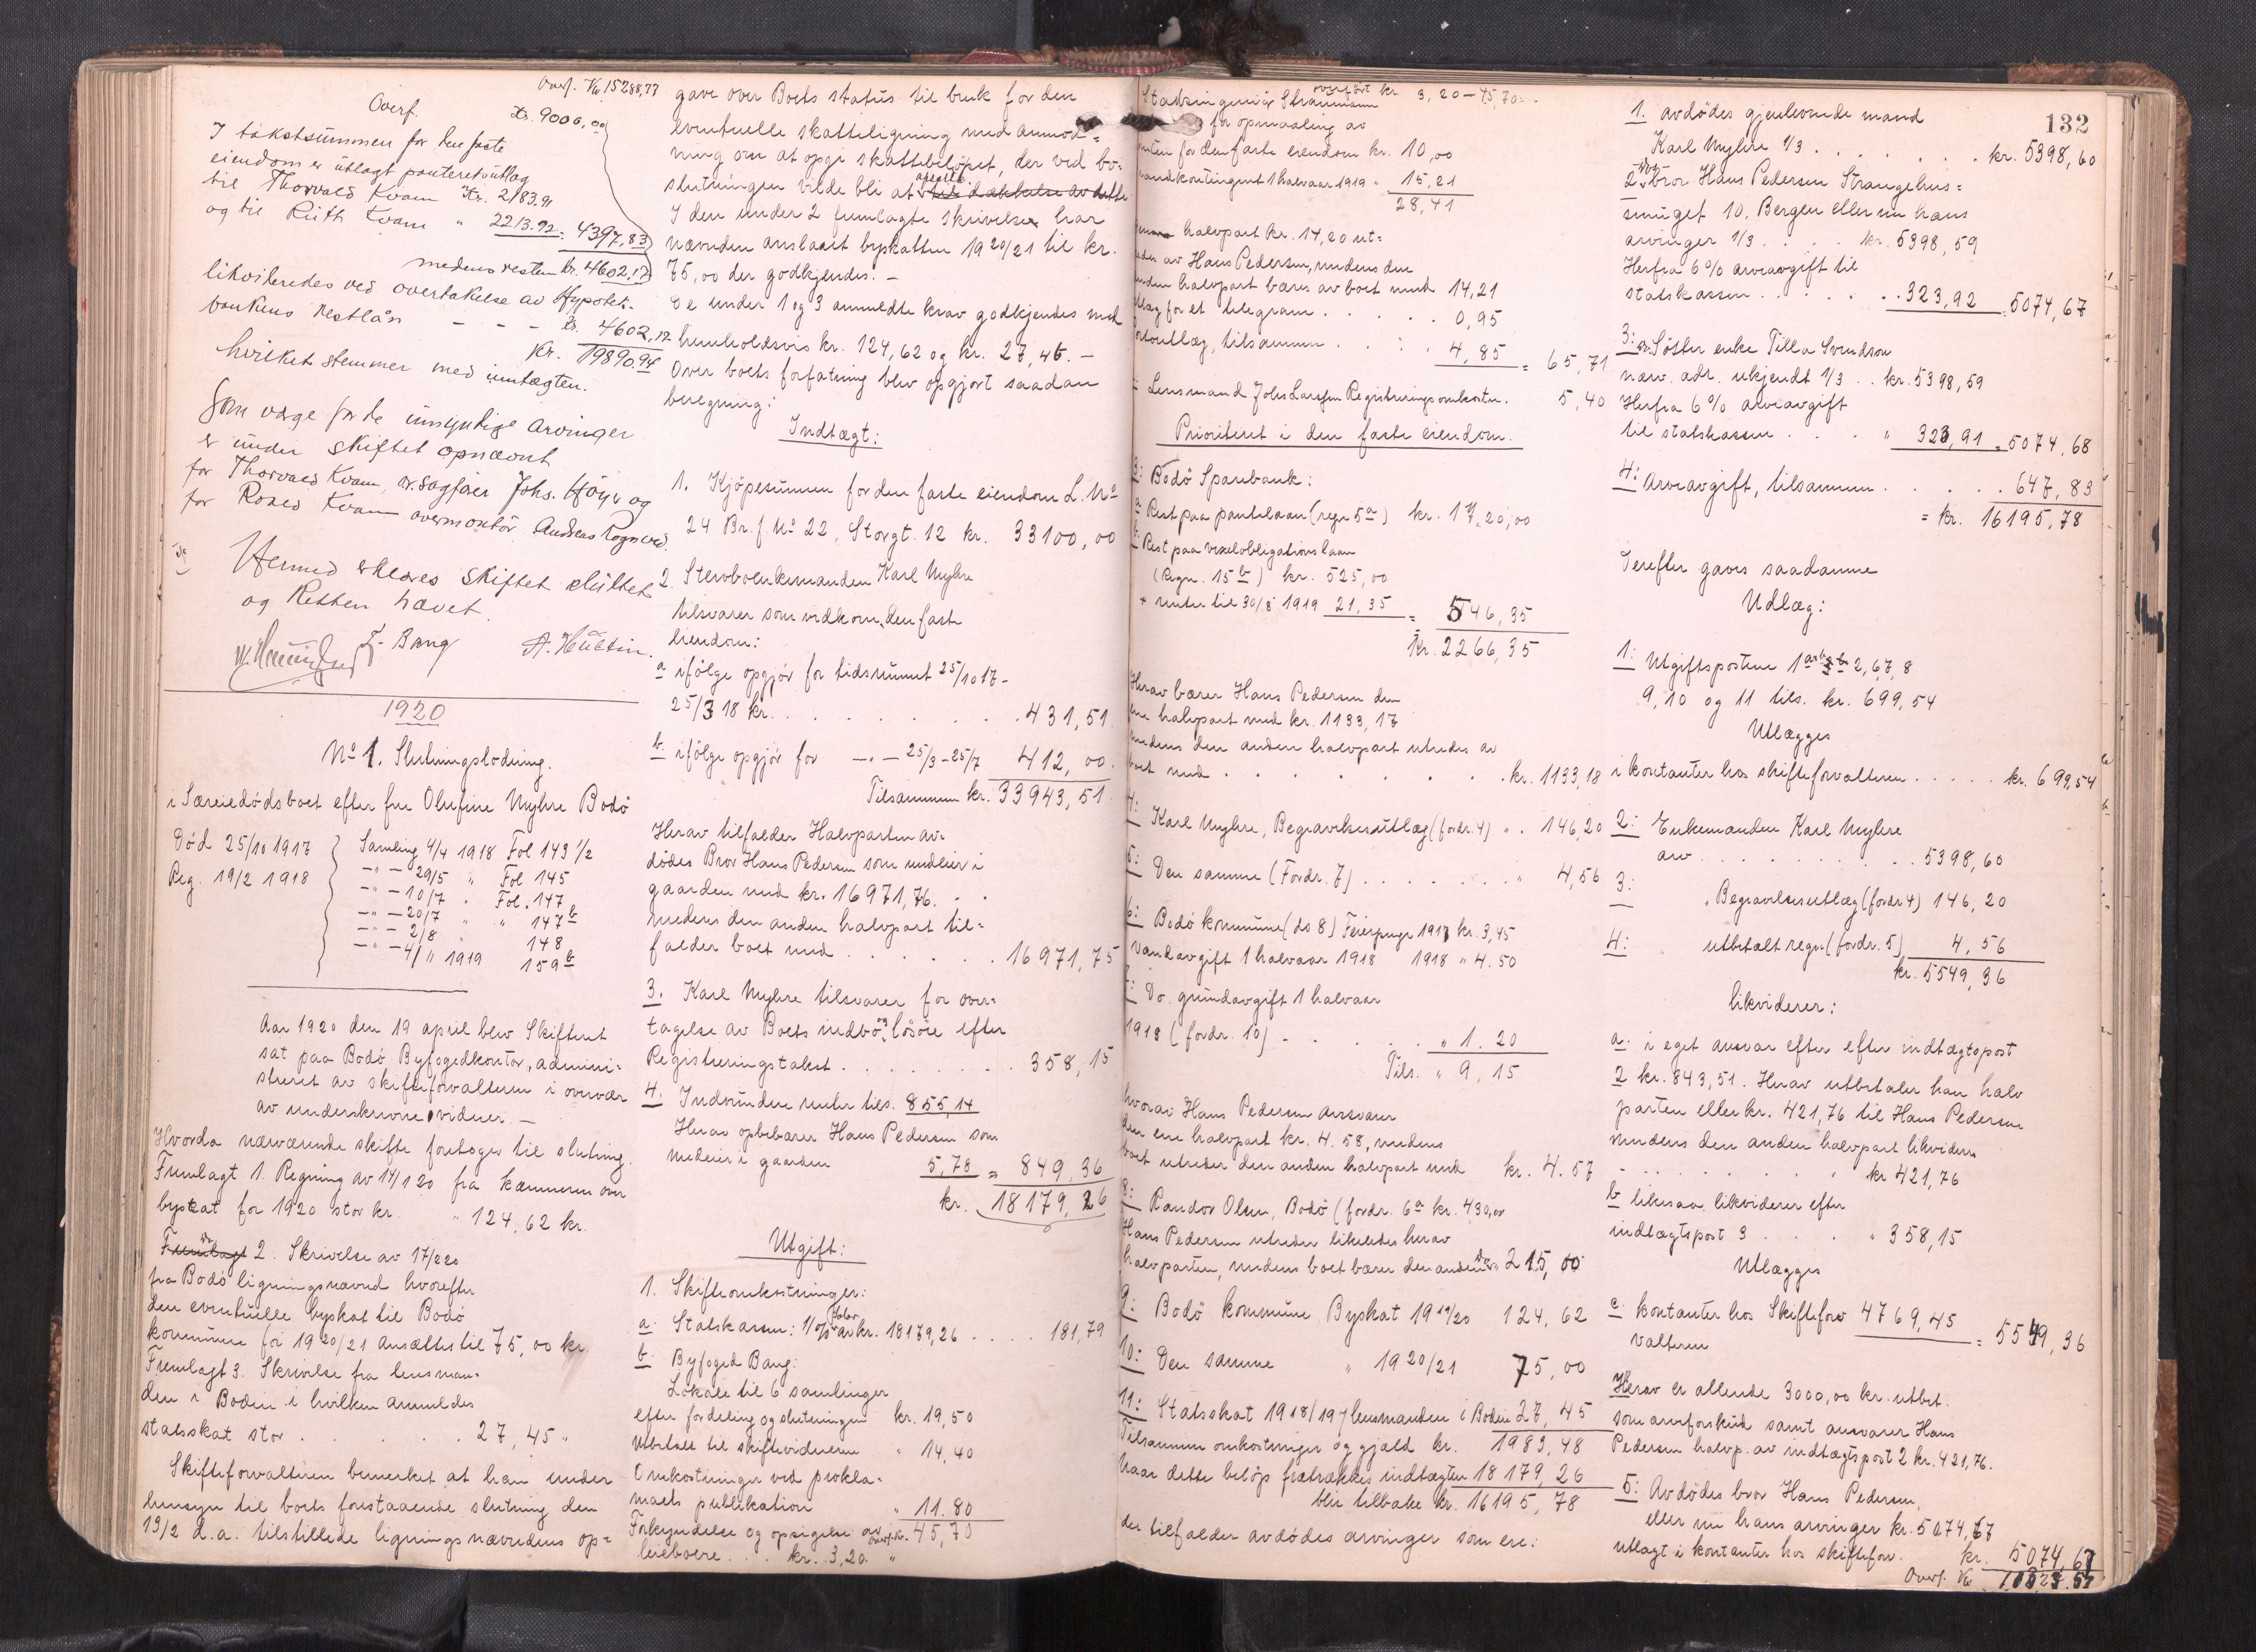 Overf. Kr. 15288,77
Overf. Kr. 9000,00
I takstsummen for den faste
eiendom er utlagt panteretsutlæg
til Thorvald Kvam Kr. 2183.91
og til Ruth Kvam " 2213.92 = 4397,83
medens resten kr. 4602,17
likvideredes ved overtakelse av Hypotek-
bankens restlån - - - kr. 4602,17
Kr. 19890.94
hvilket stemmer med inntægten.
Som verge for de umyndige arvinger
er under skiftet opnævnt
for Thorvald Kvam, o.r.sagfører Johs. Höyer og
for Roald Kvam overmontör Andreas Rognved.
Hermed erklæres skiftet sluttet
og Retten hævet.
F. Bang
A. Hultin.
1920
No 1. Slutningslodning.
i Særeiedödsboet efter fru Olufine Myhre Bodö
Död 25/10 1917
Reg. 19/2 1918
Samling 4/4 1918 Fol 143 1/2
-"- 29/5 " Fol 145
-"- 10/7 " Fol. 147
-"- 20/7 " " 147 b
-"- 2/8 " 148
-"- 4/11 1919 159 b
Aar 1920 den 19 april blev Skifteret
sat paa Bodö Byfogedkontor, admini-
streret av skifteforvalteren i overvær
av underskrevne vidner. —
Hvorda nærværende skifte foretoges til slutning.
Fremlagt 1. Regning av 14/1 20 fra kæmneren over
byskat for 1920 stor kr. " 124,62 kr.
Fremlagt do 2. Skrivelse av 17/2 20
fra Bodö ligningsnævnd hvorefter
den eventuelle byskat til Bodö
kommune for 1920/21 ansættes til 75,00 kr.
Fremlagt 3. Skrivelse fra lensman-
den i Bodin i hvilken anmeldes
statsskat stor . . . . . . 27,45 "
Skifteforvalteren bemerket at han under
hensyn til boets forestaaende slutning den
13/2 d.a. tilstillede ligningsnævndens op-
gave over Boets status til bruk for den
eventuelle skatteligning med anmod-
ning om at opgi skattebelöpet, der ved bo-
slutningen vilde bli at avsætte til dækkelse av dette
I den under 2 fremlagte skrivelse har
nævnden anslaaet byskatten 1920/21 til kr.
75,00 der godkjendes. —
De under 1 og 3 anmeldte krav godkjendes med
henholdsvis kr. 124,62 og kr. 27,45. —
Over boets forfatning blev opgjort saadan
beregning:
Indtægt:
1. Kjöpesummen for den faste eiendom L. No
24 Br.f No 22, Storgt. 12 kr. 33100,00
2. Stervboenkemanden Karl Myhre
tilsvarer som vedkom. den faste
eiendom:
a ifölge opgjör for tidsrummet 25/10 17 -
25/3 18 kr. . . . . . . . . 431,51
b. ifölge opgjör for -"- 25/3-25/7 412,00.
Tilsammen kr. 33943,51
Herav tilfalder Halvparten av-
dödes Bror Hans Pedersen som medeier i
gaarden med kr. 16971,76. - -
medens den anden halvpart til-
falder boet med . . . . . . 16971,75
3. Karl Myhre tilsvarer for over-
tagelse av Boets indbo og lösöre efter
Registreringstakst . . . . . . . 358,15
4. Indvundne renter tils. 855,14
Herav opbebærer Hans Pedersen som
medeier i gaarden 5,78 = 849,36
kr. 18179,26
Utgift:
1. Skifteomkostninger:
a. Statskassen: 1% av kr. 18179,26 . . . . 181,79
b. Byfoged Bang:
Lokale til 6 samlinger
efter fordeling og slutningen kr. 19,50
Utbetalt til skiftevidnerne " 14,40
Omkostninger ved prokla-
maets publikation " 11.80
overf. kr. 45,70
Forkyndelse og opsigelse av
leieboere . . . kr. 3,20 "
overfört kr. 3,20 — 45,70
Stadsingeniör Straumann
for opmaaling av
tomten for den faste eiendom kr. 10,00
1 halvaar 1919 " 15,21
28,41
halvpart kr. 14,20 ut-
redes av Hans Pedersen, medens den
anden halvpart bæres av boet med 14,21
Utlæg for et telegram . . . . . 0,95
Portoutlæg, tilsammen . . . . 4,85 = 65,71
Lensmand Johs Larssen Registreringsomkostn. 5,40
Prioritert i den faste eiendom.
3: Bodö Sparebank:
a Rest paa pantelaan (regn 5 a) kr. 1720,00
b Rest paa vexelobligationslaan
(Regn. 15 b) kr. 525,00
+ renter til 30/8 1919 21,35 = 546,35
kr. 2266,35
Herav bærer Hans Pedersen den
ene halvpart med kr. 1133,17
medens den anden halvpart utredes av
boet med . . . . . . . . . kr. 1133,18
4: Karl Myhre, Begravelsesutlæg (fordr. 4) " . 146,20
5: Den samme (Fordr. 7) . . . . . . . " 4,56
6: Bodö kommune (do 8) Feierpenge 1917 kr. 3,45
Vandavgift 1 halvaar 1918 1918 " 4.50
7: Do. grundavgift 1 halvaar
1918 (fordr. 10) . . . . . " 1.20
Tils. " 9,15
hvorav Hans Pedersen ansvarer
den ene halvpart kr. 4.58, medens
boet utreder den anden halvpart med kr. 4.57
8: Randor Olsen, Bodö (fordr. 6 a kr. 430,00
Hans Pedersen utreder likeledes herav
halvparten, medens boet bærer den anden do 215,00
9: Bodö kommune Byskat 1919/20 124,62
10: Den samme " 1920/21 75,00
11: Statsskat 1918/19 lensmanden i Bodin 27,45
Tilsammen omkostninger og gjæld kr. 1983,48
Naar dette belöp fratrækkes indtægten 18179,26
blir tilbake kr. 16195,78
der tilfalder avdödes arvinger som ere:
132
1. avdödes gjenlevende mand
Karl Myhre 1/3 . . . . . . . . kr. 5398,60
2. bror Hans Pedersen Strangehus-
smuget 10. Bergen eller nu hans
arvinger 1/3 . . . . kr. 5398,59
Herfra 6% arveavgift til
statskassen . . . . . . 323,92 = 5074,67
3: Söster enke Tilla Svendsen
nærv. adr. ukjendt 1/3 . . kr. 5398,59
Herfra 6% arveavgift
til statskassen . . . " 323,91 = 5074,68
4: Arveavgift, tilsammen . . . . . 647,83
= kr. 16195,78
Derefter gaves saadanne
Udlæg:
1: Utgiftsposterne 1 2,6,7,8
9,10 og 11 tils. kr. 699,54
Utlægges
i kontanter hos skifteforvalteren . . . . . kr. 699,54
2: Enkemanden Karl Myhre
arv . . . . . . . . . . 5398,60
3: Begravelsesutlæg (fordr 4) 146,20
4: utbetalt regn (fordr. 5) 4,56
kr. 5549,36
likviderer:
a. i eget ansvar efter efter indtægtspost
2 kr. 843,51. Herav utbetaler han halv
parten eller kr. 421,76 til Hans Pedersen
medens den anden halvpart likvideres
- . . . . . . . . . kr 421,76
b likesaa likviderer efter
indtægtspost 3 . . . . " 358,15
Utlægges
c. kontanter hos Skiftefor 4769,45
valteren = 5549,36
Herav er allerede 3000,00 kr. utbet.
som arveforskud samt ansvarer Hans
Pedersen halvp. av indtægtspost 2 kr. 421,76.
5: Avdödes bror Hans Pedersen,
eller nu hans arvinger kr. 5074,67
utlagt i kontanter hos skifteforv. kr. 5074,67
Overf. Kr. 11323.57